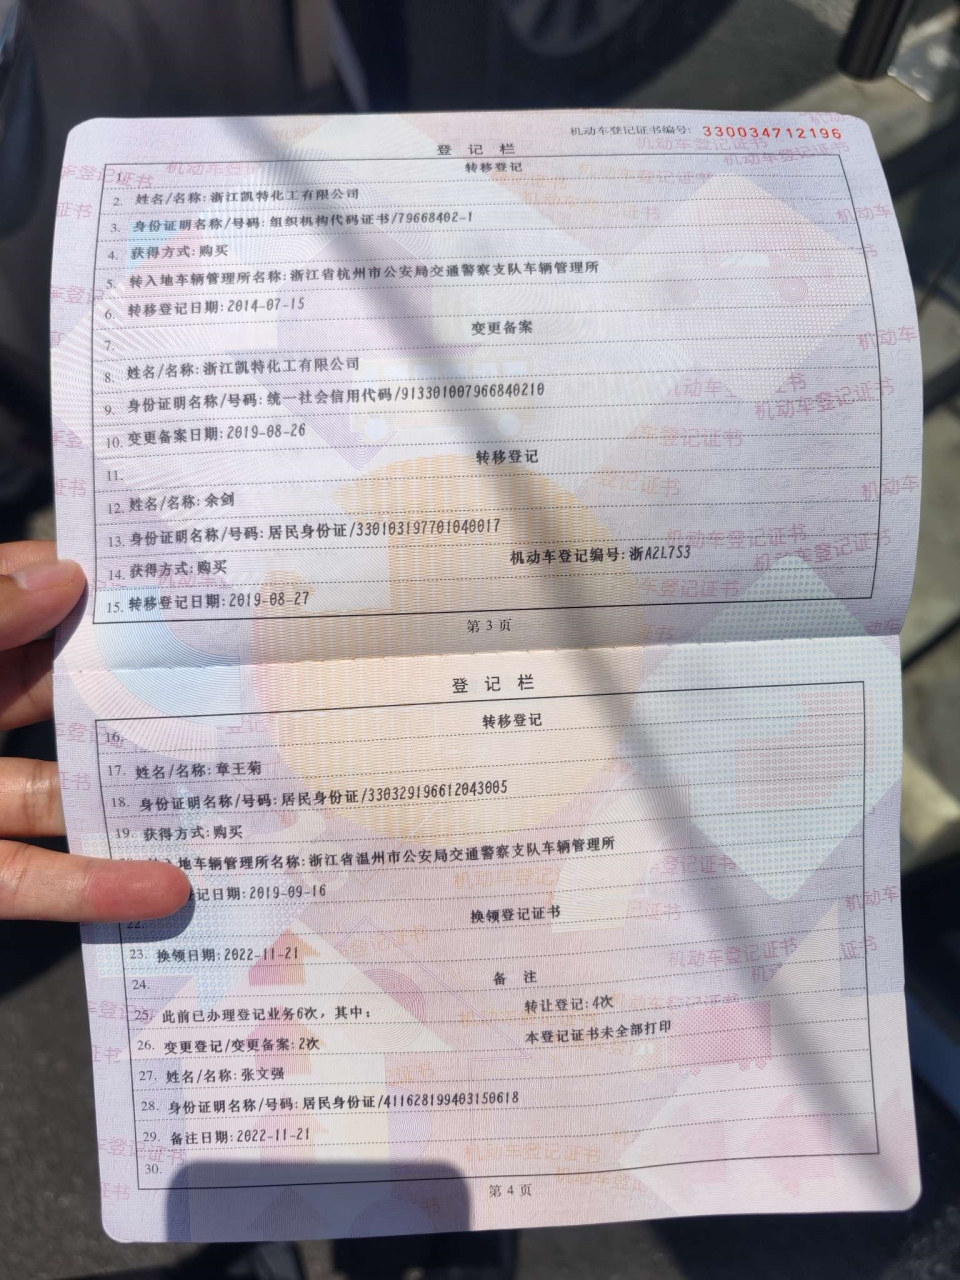 机动车登记证书编号: 330034712196
登 记 栏
1. 转移登记
2. 姓名/名称:浙江凯特化工有限公司
3. 身份证明名称/号码:组织机构代码证书/79668402-1
4. 获得方式:购买
5. 转入地车辆管理所名称:浙江省杭州市公安局交通警察支队车辆管理所
6. 转移登记日期:2014-07-15
7. 变更备案
8. 姓名/名称:浙江凯特化工有限公司
9. 身份证明名称/号码:统一社会信用代码/913301007966840210
10. 变更备案日期:2019-08-26
11. 转移登记
12. 姓名/名称:余剑
13. 身份证明名称/号码:居民身份证/330103197701040017
14. 获得方式:购买 机动车登记编号:浙A2L7S3
15. 转移登记日期:2019-08-27
第 3 页
登 记 栏
16. 转移登记
17. 姓名/名称:章王菊
18. 身份证明名称/号码:居民身份证/330329196612043005
19. 获得方式:购买
地车辆管理所名称:浙江省温州市公安局交通警察支队车辆管理所
记日期:2019-09-16
22. 换领登记证书
23. 换领日期:2022-11-21
24. 备 注
25. 此前已办理登记业务6次，其中: 转让登记:4次
26. 变更登记/变更备案:2次 本登记证书未全部打印
27. 姓名/名称:张文强
28. 身份证明名称/号码:居民身份证/411628199403150618
29. 备注日期:2022-11-21
30.
第 4 页